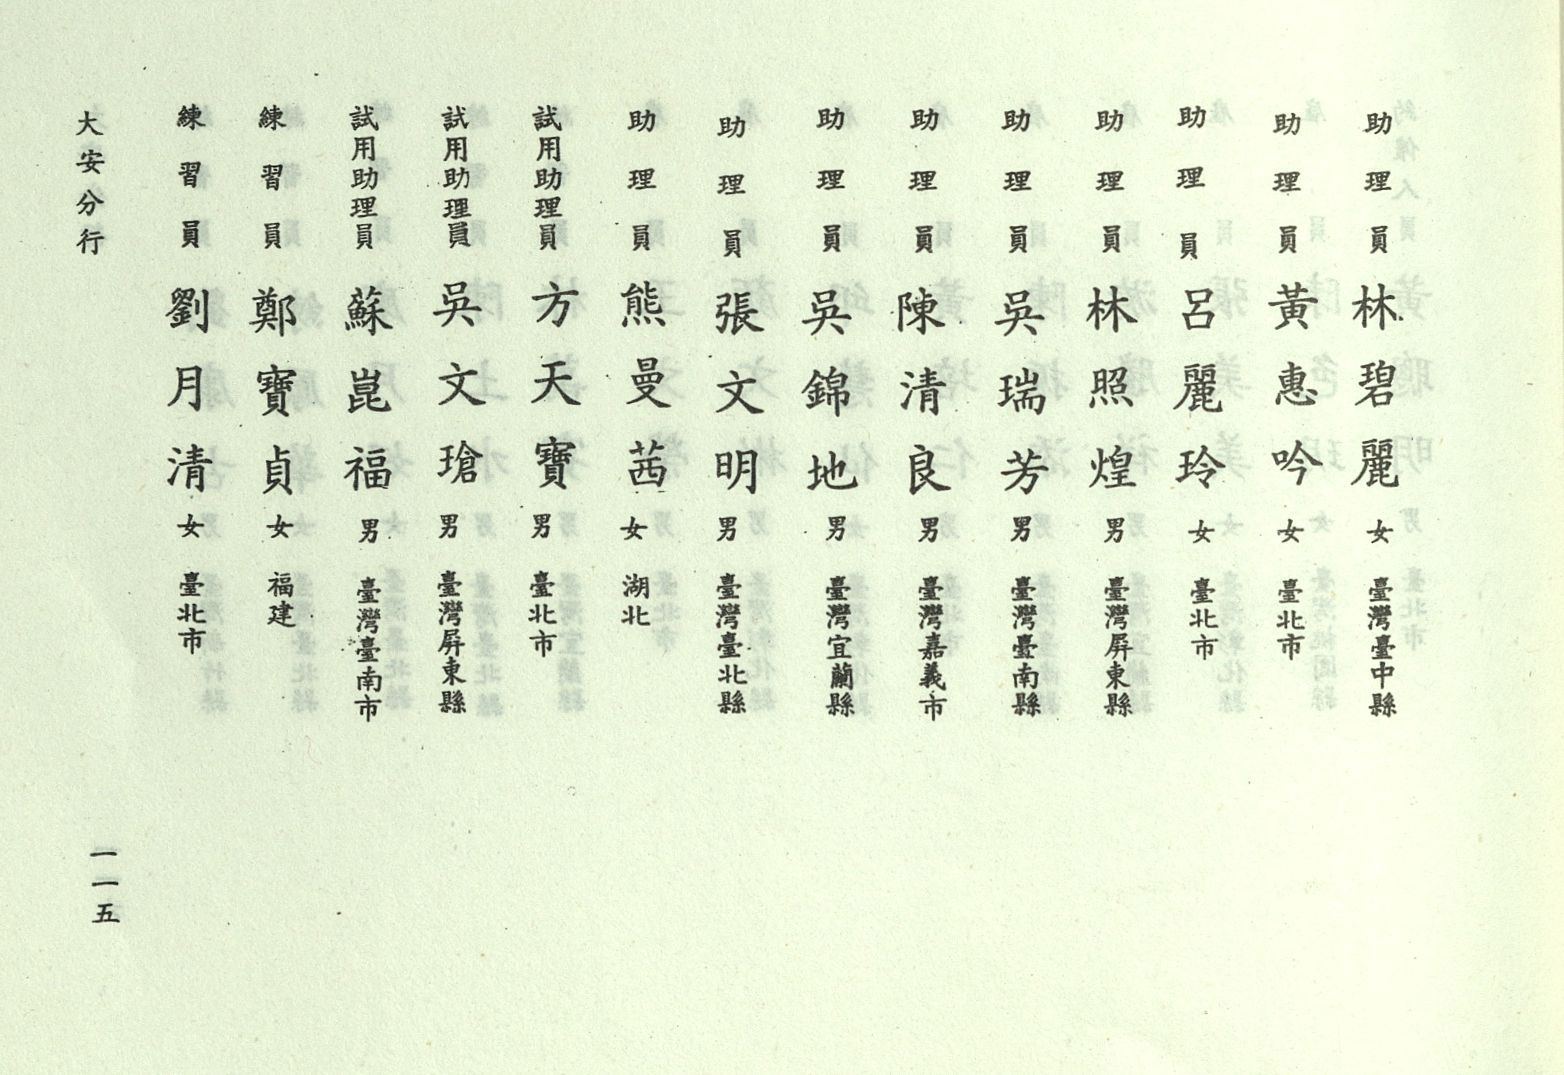 助理員 林碧麗 女 臺灣臺中縣
助理員 黃惠吟 女 臺北市
助理員 呂麗玲 女 臺北市
助理員 林照煌 男 臺灣屏東縣
助理員 吳瑞芳 男 臺灣臺南縣
助理員 陳清良 男 臺灣嘉義市
助理員 吳錦地 男 臺灣宜蘭縣
助理員 張文明 男 臺灣臺北縣
助理員 熊曼茜 女 湖北
試用助理員 方天寶 男 臺北市
試用助理員 吳文瑲 男 臺灣屏東縣
試用助理員 蘇崑福 男 臺灣臺南市
練習員 鄭寶貞 女 福建
練習員 劉月清 女 臺北市
大安分行
一一五